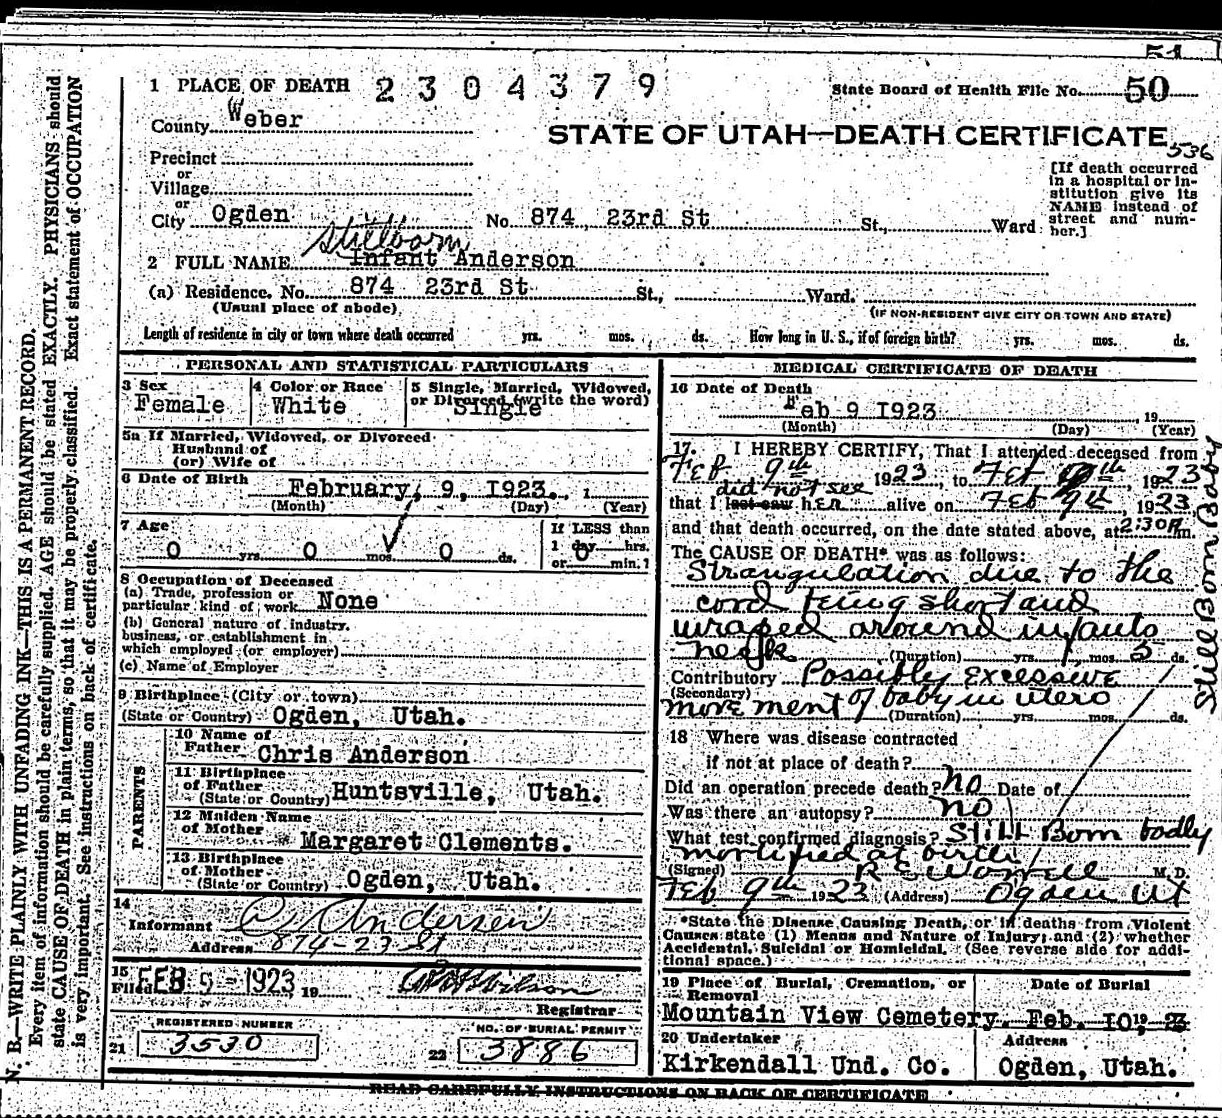 51
1 PLACE OF DEATH 2304379
State Board of Health File No. 50
County Weber
STATE OF UTAH—DEATH CERTIFICATE
536
Precinct
or
Village
or
City Ogden No. 874 23rd St St., Ward
[If death occurred
in a hospital or in-
stitution give its
NAME instead of
street and num-
ber.]
Stillborn
2 FULL NAME Infant Anderson
(a) Residence. No. 874 23rd St St., Ward.
(Usual place of abode) (IF NON-RESIDENT GIVE CITY OR TOWN AND STATE)
Length of residence in city or town where death occurred yrs. mos. ds. How long in U. S., if of foreign birth? yrs. mos. ds.
PERSONAL AND STATISTICAL PARTICULARS
3 Sex Female
4 Color or Race White
5 Single, Married, Widowed,
or Divorced (write the word)
Single
5a If Married, Widowed, or Divorced
Husband of
(or) Wife of
6 Date of Birth February, 9, I923. 1
(Month) (Day) (Year)
7 Age 0 yrs. 0 mos. 0 ds.
If LESS than
1 day 0 hrs.
or min.]
8 Occupation of Deceased
(a) Trade, profession or
particular kind of work None
(b) General nature of industry,
business, or establishment in
which employed (or employer)
(c) Name of Employer
9 Birthplace (City or town)
(State or Country) Ogden, Utah.
PARENTS
10 Name of
Father Chris Anderson
11 Birthplace
of Father
(State or Country) Huntsville, Utah.
12 Maiden Name
of Mother Margaret Clements.
13 Birthplace
of Mother
(State or Country) Ogden, Utah.
14
Informant C. Andersen
Address 874-23 St
15
Filed FEB 5 - 1923, 19
Wilson
Registrar
REGISTERED NUMBER
21 3530
NO. OF BURIAL PERMIT
22 3886
MEDICAL CERTIFICATE OF DEATH
16 Date of Death
Feb 9 I923 19
(Month) (Day) (Year)
17. I HEREBY CERTIFY, That I attended deceased from
Feb 9th 1923, to Feb 9th, 1923
did not see
that I last saw her alive on Feb 9th, 1923
and that death occurred, on the date stated above, at 2:30 P m.
The CAUSE OF DEATH* was as follows:
Strangulation due to the
cord being short and
wraped around infants
neck (Duration) yrs. mos. ds.
Contributory Possibly Excessive
(Secondary)
movement of baby in utero
(Duration) yrs. mos. ds.
18 Where was disease contracted
if not at place of death?
Did an operation precede death? no Date of
Was there an autopsy? no
What test confirmed diagnosis? Still Born badly
mortified at birth
(Signed) M. D.
Feb 9th 1923 (Address) Ogden Ut
*State the Disease Causing Death, or in deaths from Violent
Causes state (1) Means and Nature of Injury; and (2) whether
Accidental, Suicidal or Homicidal. (See reverse side for addi-
tional space.)
19 Place of Burial, Cremation, or
Removal
Mountain View Cemetery.
Date of Burial
Feb. IO, 19 23
20 Undertaker
Kirkendall Und. Co.
Address
Ogden, Utah.
READ CAREFULLY INSTRUCTIONS ON BACK OF CERTIFICATE
Still Born Baby
N. B.—WRITE PLAINLY WITH UNFADING INK—THIS IS A PERMANENT RECORD.
Every item of information should be carefully supplied. AGE should be stated EXACTLY. PHYSICIANS should
state CAUSE OF DEATH in plain terms, so that it may be properly classified. Exact statement of OCCUPATION
is very important. See instructions on back of certificate.